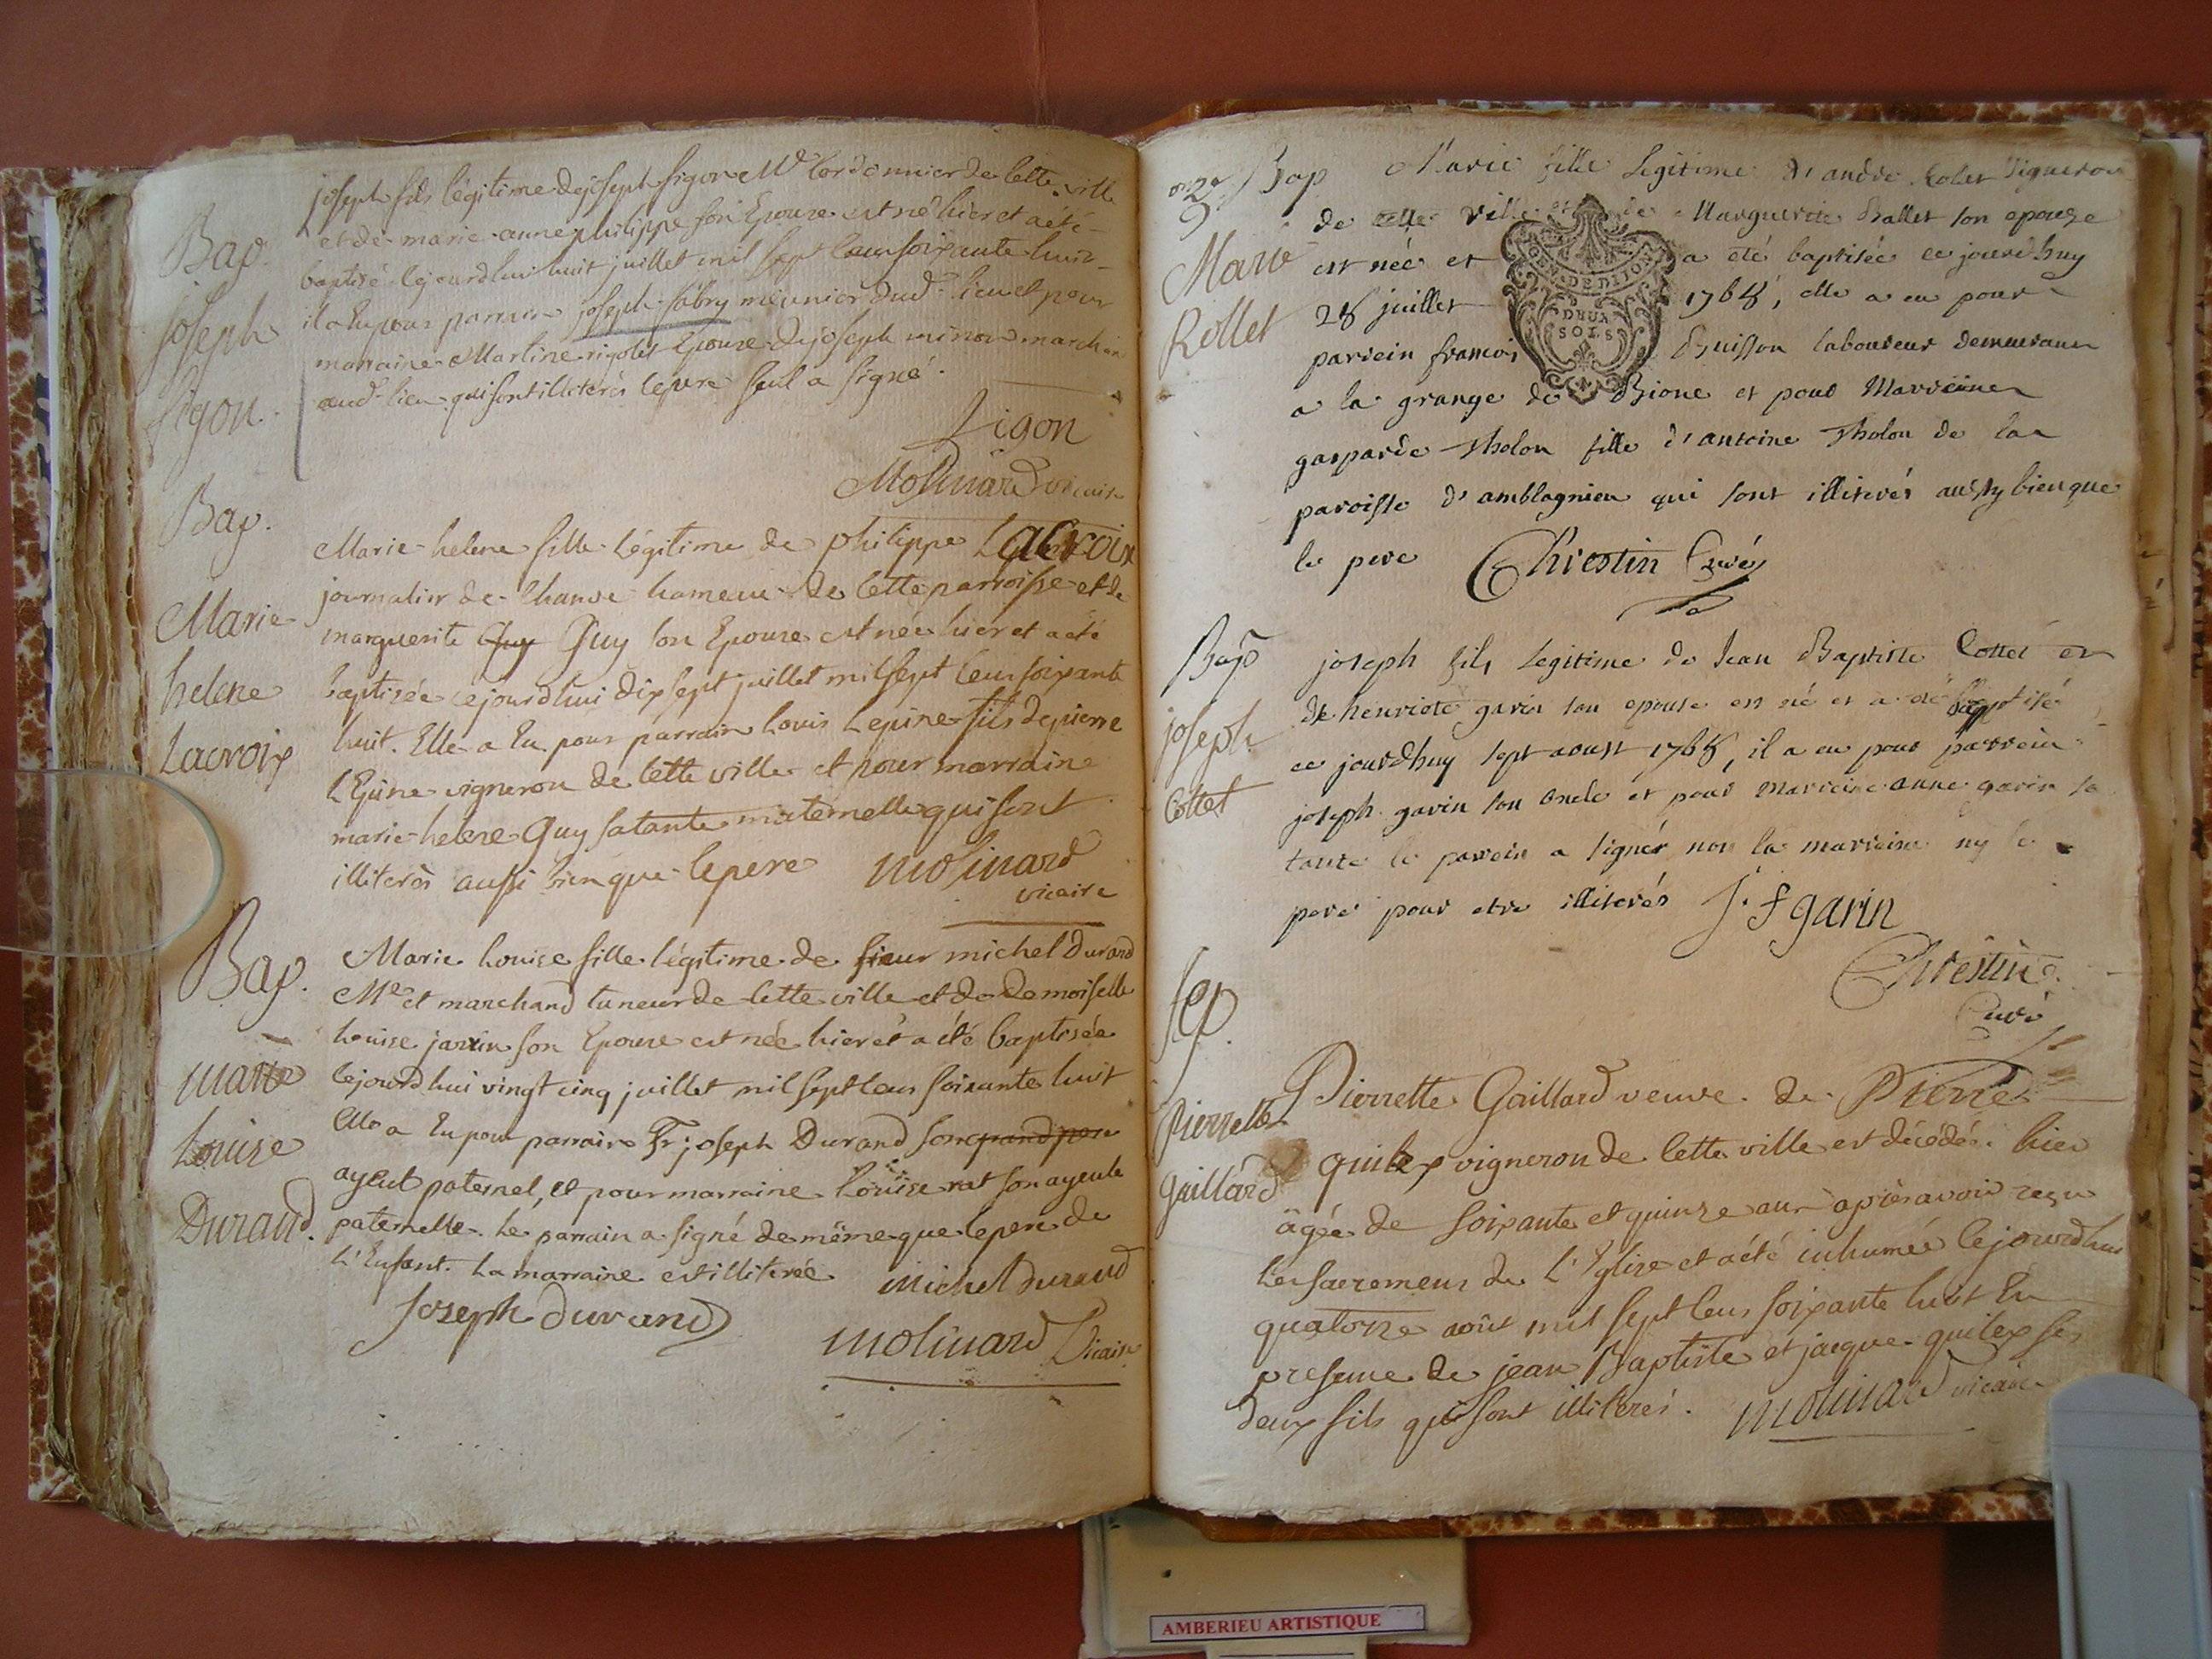 Bap.
joseph
figon.
joseph fils légitime de joseph figon Md Cordonnier de cette ville
et de marie anne philippe son Epouse est né hier et a été
baptisé cejourdhui huit juillet mil sept cens soixante huit
il a Eu pour parrain joseph fabry meunier dud. lieu et pour
marraine Martine rigolet Epouse de joseph minor marchan
aud. lieu qui sont illiterés le pere seul a signé.
figon
Molinard vicaire
Bap.
Marie
helene
Lacroix
Marie helene fille légitime de philippe Lacroix
journalier de Chanve hameau de cette parroisse et de
marguerite Guy Guy son Epouse est née hier et a été
baptisée cejourdhui dix sept juillet mil sept cens soixante
huit. Elle a Eu pour parrain Louis Lepine fils de pierre
L'Epine vigneron de cette ville et pour marraine
marie helene Guy sa tante maternelle qui sont
illiterés aussi bien que le pere molinard
vicaire
Bap.
marie
Louise
Durand.
Marie Louise fille légitime de sieur michel Durand
Me et marchand taneur de cette ville et de demoiselle
Louise jarrin son Epouse est née hier et a été baptisée
cejourdhui vingt cinq juillet mil sept cens soixante huit
Elle a Eu pour parrain Fr joseph Durand son grand pere
ayeul paternel, et pour marraine Louise rat son ayeule
paternelle. Le parrain a signé de même que le pere de
L'Enfant. La marraine est illiterée michel durand
Joseph durand
molinard Vicaire
onze
Bap
Marie
Rollet
Marie fille Legitime d'andré Rolet Vigneron
de cette ville et de Marguerite Ballet son epouse
est née et a eté baptisée ce jourdhuy
28 juillet 1768, elle a eu pour
parrein francois Buisson laboureur demeurant
a la grange de Bione et pour Marreine
gasparde tholon fille d'antoine tholon de la
paroisse d'amblagnieu qui sont illiterés aussy bien que
le pere Chrestin Curé
GEN. DE DIJON
DEUX
SOLS
Bap
joseph
Cottet
joseph fils Legitime de Jean Baptiste Cottet et
de henriete garin son epouse est né et a eté baptisé
ce jourdhuy sept aoust 1768, il a eu pour parrein
joseph garin son oncle et pour marreine anne garin sa
tante le parrein a signér non la marreine ny le
pere pour etre illiterés J. f garin
Chrestin
Curé
Sep.
Pierrette
Gaillard
Pierrette Gaillard veuve de Pierre
quilex vigneron de cette ville est décédée hier
âgée de soixante et quinze ans après avoir reçu
les sacremens de L'Eglise et a été inhumée cejourdhui
quatorze août mil sept cens soixante huit En
presence de jean Baptiste et jacque quilex ses
deux fils qui sont illiterés. molinard vicaire
AMBERIEU ARTISTIQUE